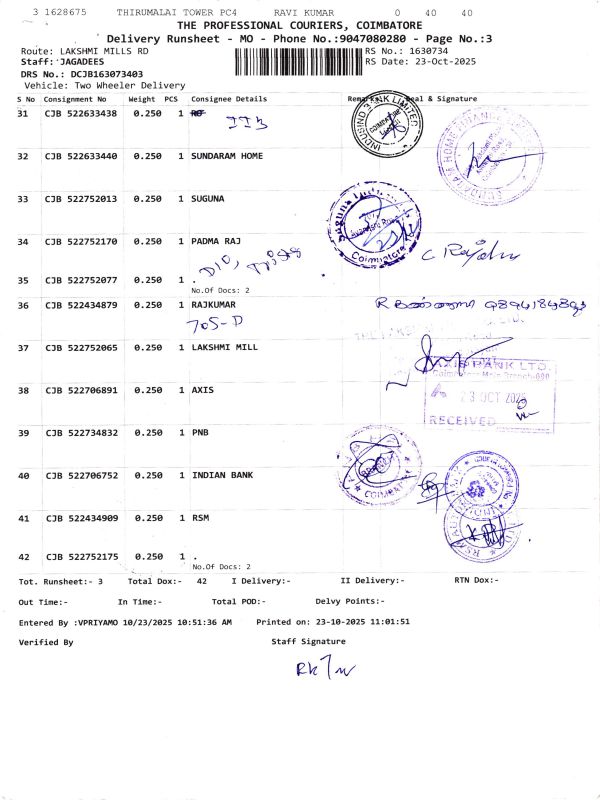 3 1628675 THIRUMALAI TOWER PC4 RAVI KUMAR 0 40 40
THE PROFESSIONAL COURIERS, COIMBATORE
Delivery Runsheet - MO - Phone No.:9047080280 - Page No.:3
Route: LAKSHMI MILLS RD RS No.: 1630734
Staff: JAGADEES RS Date: 23-Oct-2025
DRS No.: DCJB163073403
Vehicle: Two Wheeler Delivery
S No Consignment No Weight PCS Consignee Details Remarks Seal & Signature
31 CJB 522633438 0.250 1
INDUSIND BANK LIMITED
32 CJB 522633440 0.250 1 SUNDARAM HOME
33 CJB 522752013 0.250 1 SUGUNA
Coimbatore
34 CJB 522752170 0.250 1 PADMA RAJ
35 CJB 522752077 0.250 1 .
No.Of Docs: 2
36 CJB 522434879 0.250 1 RAJKUMAR
705-D
37 CJB 522752065 0.250 1 LAKSHMI MILL
AXIS BANK LTD.
38 CJB 522706891 0.250 1 AXIS
23 OCT 2025
RECEIVED
39 CJB 522734832 0.250 1 PNB
40 CJB 522706752 0.250 1 INDIAN BANK
41 CJB 522434909 0.250 1 RSM
42 CJB 522752175 0.250 1 .
No.Of Docs: 2
Tot. Runsheet:- 3 Total Dox:- 42 I Delivery:- II Delivery:- RTN Dox:-
Out Time:- In Time:- Total POD:- Delvy Points:-
Entered By :VPRIYAMO 10/23/2025 10:51:36 AM Printed on: 23-10-2025 11:01:51
Verified By Staff Signature